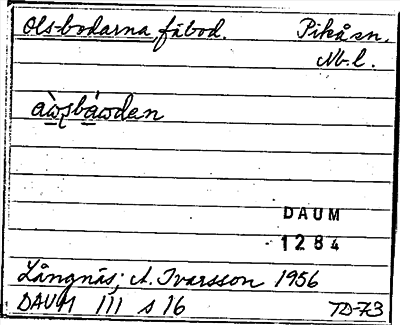 Olsbodarna, fäbod. Piteå sn.
Nb. l.
DAUM
1284
Långnäs; A. Ivarsson 1956
DAUM 111 s 16 TD-73